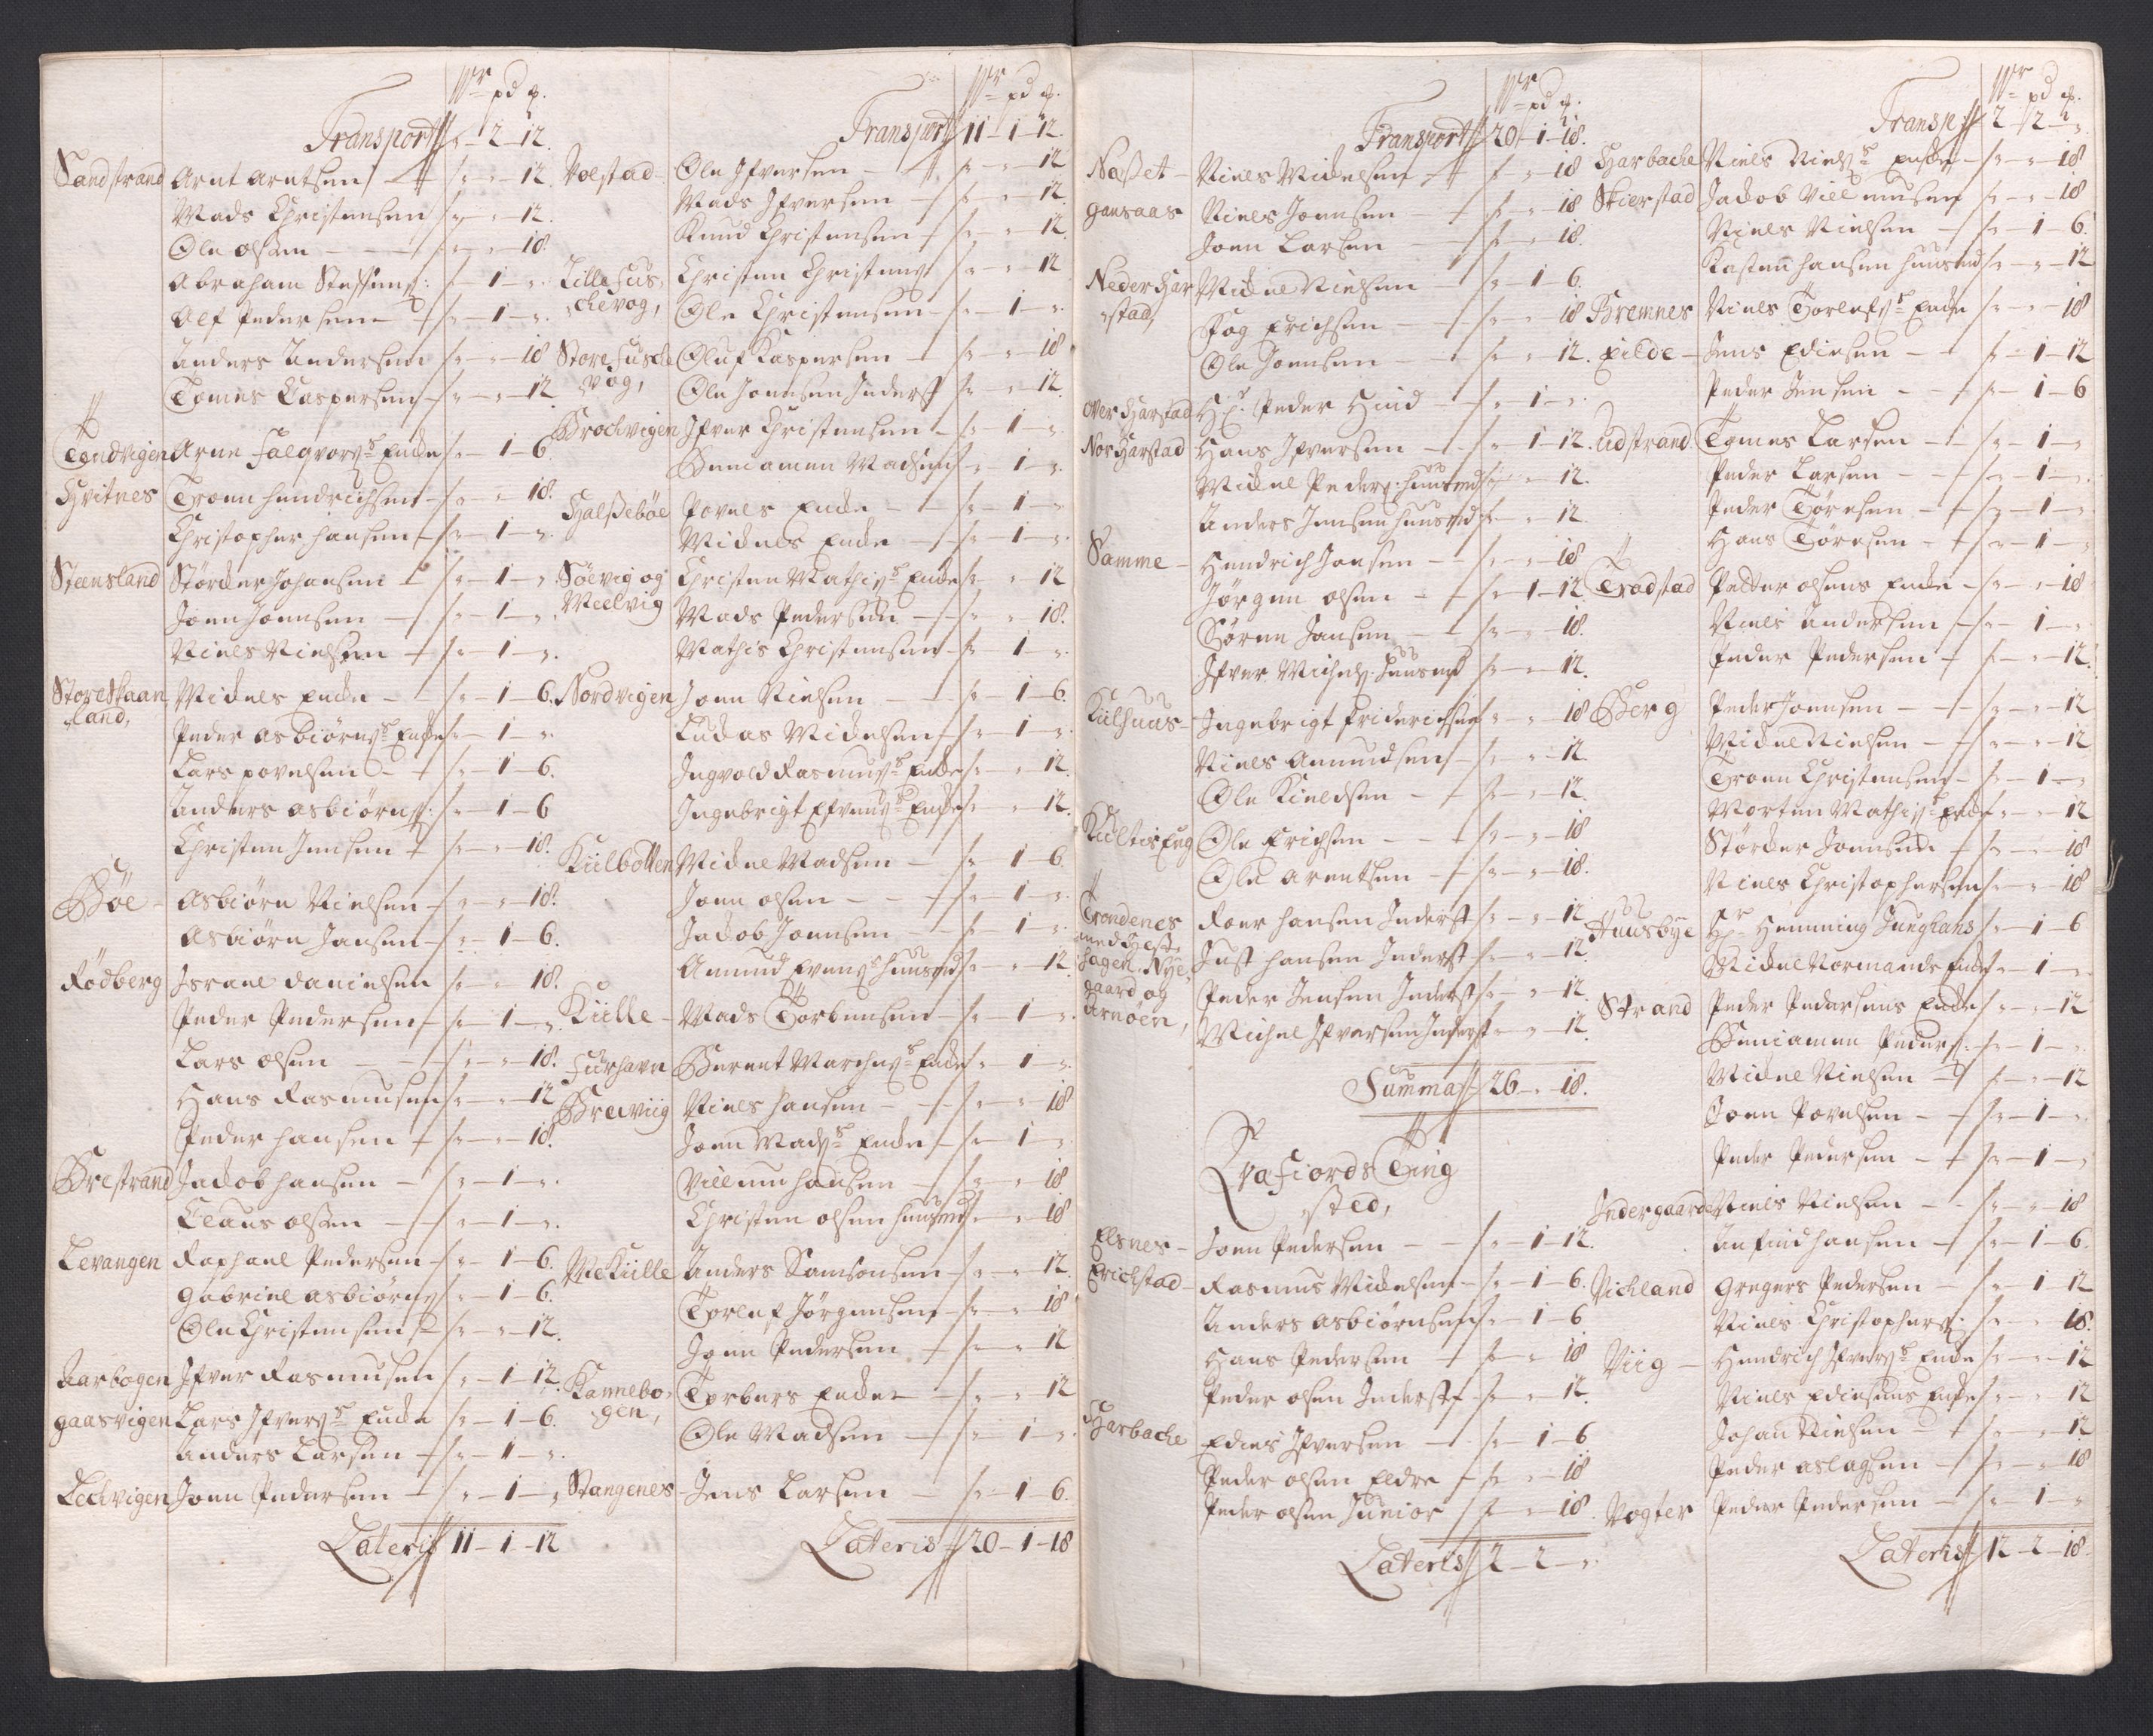 Wr pd q.
Transport „ - 2 - 12.
Sandstrand Arnt Arntsen „ - „ - 12
Mads Christensen „ - „ - 12.
Ole Olsen „ - „ - 18
Abraham Steffens: „ - 1 - „
Olf Pedersen „ - 1 - „
Anders Andersen „ - „ - 18
Tomes Caspersen „ - „ - 12
Tondvigen Arne Falqvors Enke „ - 1 - 6
Hvitnes Tronn Hendrichsen „ - „ - 18.
Christopher Hansen „ - 1 - „
Steensland Störcker Johansen „ - 1 - „
Joen Joensen „ - 1 - „
Niels Nielsen „ - 1 - „
Store Skaanland, Mickels Encke „ - 1 - 6.
Peder Asbiörns Encke „ - 1 - „
Lars Povelsen „ - 1 - 6.
Anders Asbiörns: „ - 1 - 6
Christen Jensen „ - „ - 18.
Böe Asbiörn Nielsen „ - „ - 18.
Asbiörn Jansen „ - 1 - 6.
Rödberg Israel Danielsen „ - „ - 18.
Peder Pedersen „ - 1 - „
Lars Olsen „ - „ - 18.
Hans Rasmusen „ - „ - 12
Peder Hansen „ - „ - 18.
Brestrand Jackob Hansen „ - 1 - „
Claus Olsen „ - 1 - „
Levangen Raphael Pedersen „ - 1 - 6.
Gabriel Asbiörns „ - 1 - 6.
Ole Christensen „ - „ - 12.
Aarbogen Ifver Rasmusen „ - 1 - 12.
Gaasvigen Lars Ifvers Encke „ - 1 - 6.
Anders Larsen „ - 1 - „
Lechvigen Joen Pedersen „ - 1 - „
Lateris 11 - 1 - 12
Wr pd q.
Transport 11 - 1 - 12.
Volstad Ole Ifversen „ - „ - 12
Mads Ifversen „ - „ - 12.
Knud Christensen „ - „ - 12.
Lille Fuschevog, Christen Christens „ - „ - 12
Ole Christensen „ - 1 - „
Store Fuskevog, Oluf Kaspersen „ - „ - 18
Ole Joensen Inderst „ - „ - 12.
Brochvigen Ifver Christensen „ - 1 - „
Beniamen Madsen „ - 1 - „
Halsseböe Povels Encke „ - 1 - „
Mickels Encke „ - 1 - „
Söevig og Meelvig Christen Mathis Encke „ - „ - 12
Mads Pedersen „ - „ - 18.
Mathis Christensen „ - 1 - „
Nordvigen Joen Nielsen „ - 1 - 6.
Ludas Mickelsen „ - 1 - „
Ingvold Rasmus Encke „ - „ - 12.
Ingebrigt Efvens Encke „ - „ - 12.
Kiilbotten Mickel Madsen „ - 1 - 6
Joen Olsen „ - 1 - „
Jackob Joensen „ - 1 - „
Amund Evens Huusmd „ - „ - 12
Kiille Mads Torbensen „ - 1 - „
Furhavn Berent Marchus Encke „ - 1 - „
Breiviig Niels Hansen „ - „ - 18
Joen Mads Encke „ - 1 - „
Villum Hansen „ - „ - 18
Christen Olsen Huusmd „ - „ - 18
Mekiille Anders Samsonsen „ - „ - 12.
Torlef Jörgensen „ - „ - 18
Joen Pedersen „ - „ - 12
Kannebogen, Torbers Encke „ - „ - 12
Ole Madsen „ - 1 - „
Stangenes Jens Larsen „ - 1 - 6.
Lateris 20 - 1 - 18
Wr pd q.
Transport 20 - 1 - 18.
Nasset Niels Mickelsen „ - „ - 18
Gansaas Niels Joensen „ - „ - 18
Joen Larsen „ - „ - 18.
Neder Harstad, Mickel Nielsen „ - 1 - 6.
Fog Erichsen „ - „ - 18
Ole Joensen „ - „ - 12.
Over Harstad Hr. Peder Hind „ - 1 - „
Nor Harstad Hans Ifversen „ - 1 - 12.
Mickel Peders: Huusmd „ - „ - 12.
Anders Jensen Huusmd „ - „ - 12
Samme Hendrich Jansen „ - „ - 18
Jörgen Olsen „ - 1 - 12
Sören Jansen „ - „ - 18.
Ifver Michels: Huusmd „ - „ - 12.
Kiilhuus Ingebrigt Friderichsen „ - „ - 18
Niels Amundsen „ - „ - 12.
Ole Kieldsen „ - „ - 12.
Kieltis Eng Ole Erichsen „ - „ - 18
Ole Arentsen „ - „ - 18.
Trondenes med Heste hagen, Nyegaard og Arnöen, Roer Hansen Inderst „ - „ - 12
Just Hansen Inderst „ - „ - 12
Peder Jensen Inderst „ - „ - 12.
Michel Ifversen Inderst „ - „ - 12.
Summa 26 - „ - 18.
Qvafiords Ting
sted,
Elsnes Joen Pedersen „ - 1 - 12.
Erichstad Rasmus Mickelsen „ - 1 - 6.
Anders Asbiörnsen „ - 1 - 6
Hans Pedersen „ - „ - 18
Peder Olsen Inderst „ - „ - 12.
Harbache Edies Ifversen „ - 1 - 6
Peder Olsen Eldre „ - „ - 18
Peder Olsen Junior „ - „ - 18
Lateris 2 - 2 - „
Wr pd q.
Transp 2 - 2 - „
Harbache Niels Niels Encke „ - „ - 18
Skierstad Jackob Villumsen „ - „ - 18
Niels Nielsen „ - 1 - 6.
Kasten Hansen Huusmd „ - „ - 12
Bremnes Niels Torlefs Encke „ - „ - 18
Eilde Jens Ediesen „ - 1 - 12
Peder Jensen „ - 1 - 6
Udstrand Tomes Larsen „ - 1 - „
Peder Larsen „ - 1 - „
Peder Töresen „ - 1 - „
Hans Töresen „ - 1 - „
Tradstad Petter Olsens Encke „ - „ - 18
Niels Andersen „ - 1 - „
Peder Pedersen „ - „ - 12.
Berg Peder Joensen „ - „ - 12
Mickel Nielsen „ - „ - 12
Tronn Christensen „ - 1 - „
Morten Mathis Encke „ - „ - 12
Störcker Joensen „ - „ - 18
Niels Christophersen „ - „ - 18
Huusbye Hr Hemming Junghans „ - 1 - 6
Mickel Normands Encke „ - 1 - „
Strand Peder Pedersens Encke „ - „ - 12
Beniamen Peders: „ - 1 - „
Mickel Nielsen „ - „ - 12
Joen Povelsen „ - 1 - „
Peder Pedersen „ - 1 - „
Indergaard Niels Nielsen „ - „ - 18
Anfind Hansen „ - 1 - 6.
Vichland Gregers Pedersen „ - 1 - 12
Niels Christophers: „ - „ - 18.
Viig Hendrich Ifvers Encke „ - „ - 12
Niels Ediesens Encke „ - „ - 12
Johan Nielsen „ - „ - 12
Peder Aslagsen „ - „ - 18
Vogter Peder Pedersen „ - 1 - „
Lateris 12 - 2 - 18.